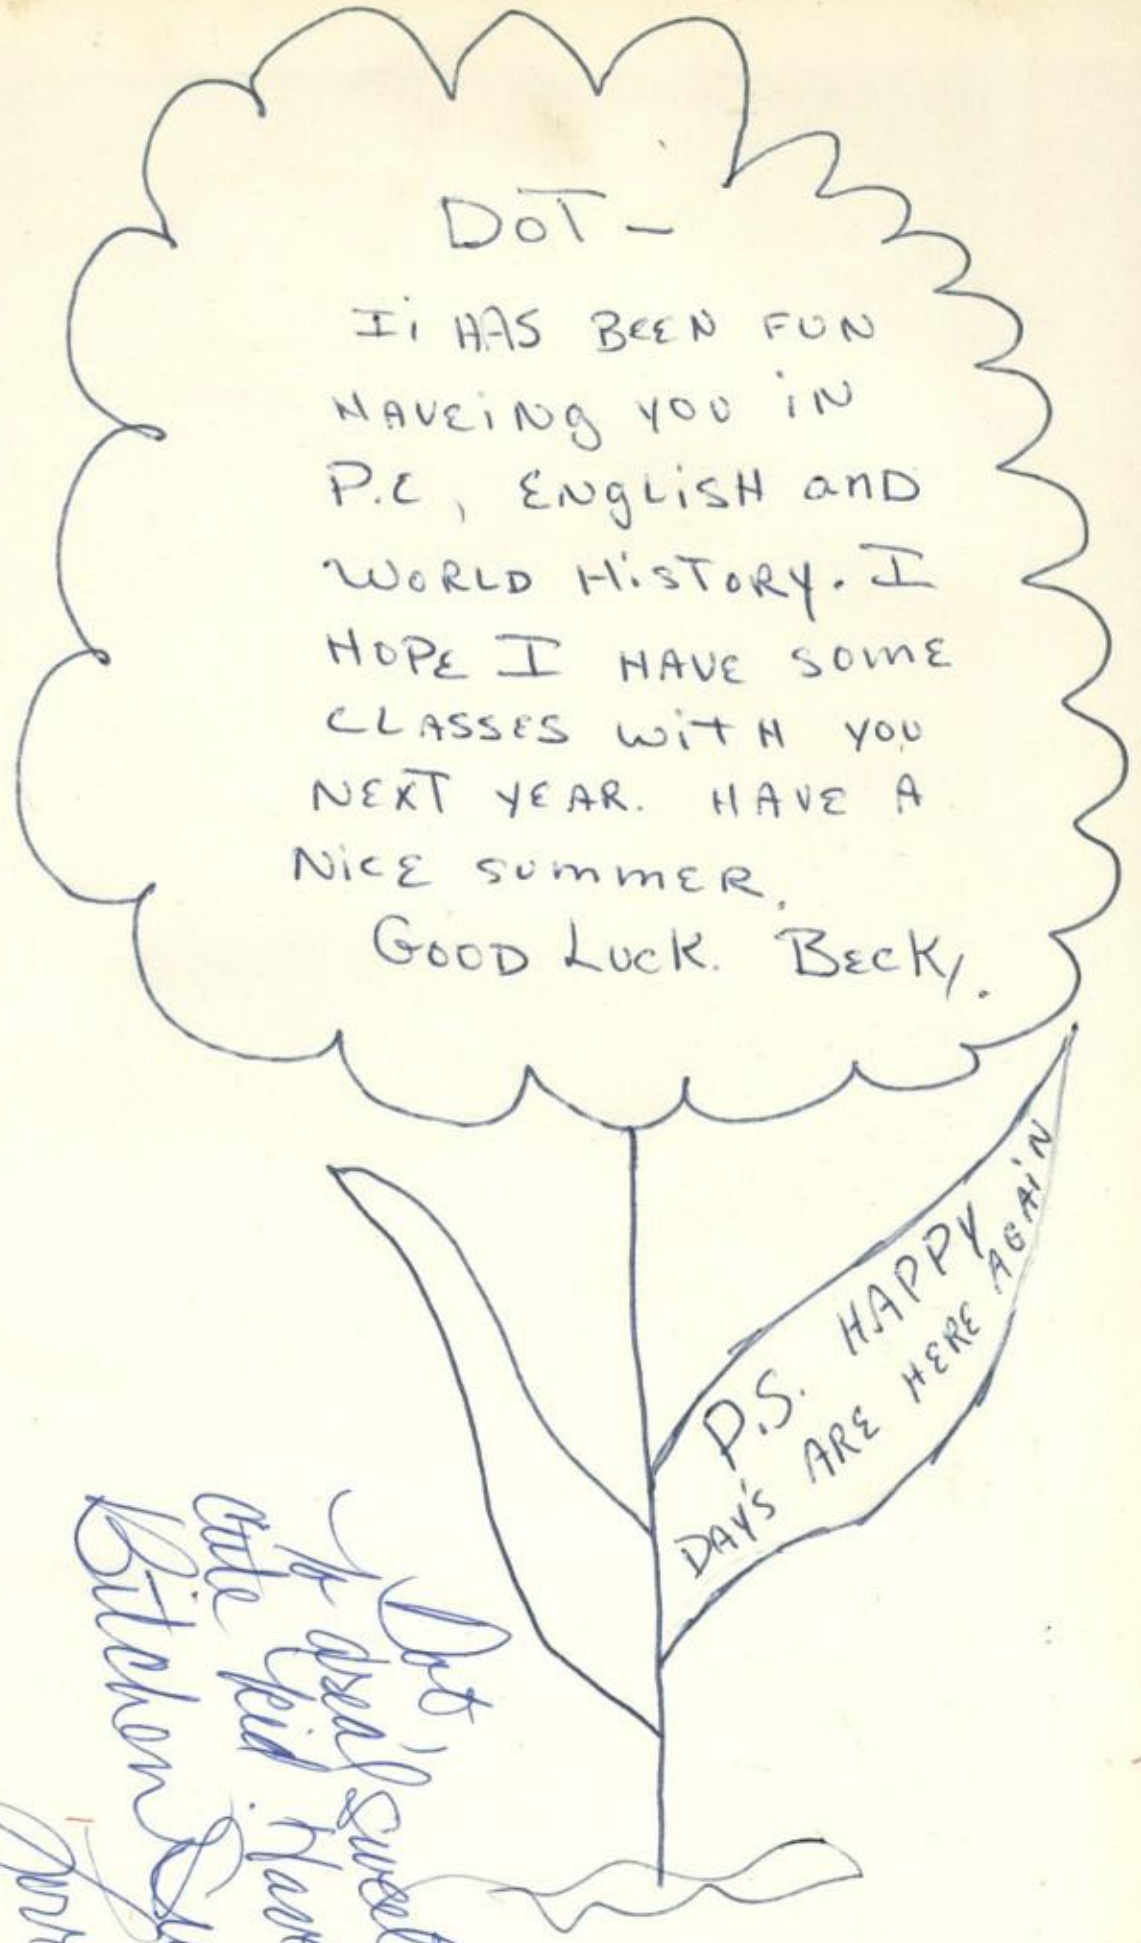 DOT -
IT HAS BEEN FUN
HAVEING YOU IN
P.E, ENGLISH AND
WORLD HISTORY. I
HOPE I HAVE SOME
CLASSES WITH YOU
NEXT YEAR. HAVE A
NICE SUMMER.
GOOD LUCK. BECKY.
P.S. HAPPY
DAY'S ARE HERE AGAIN
Dot
To a real sweet
cute kid. Have
Bitchen